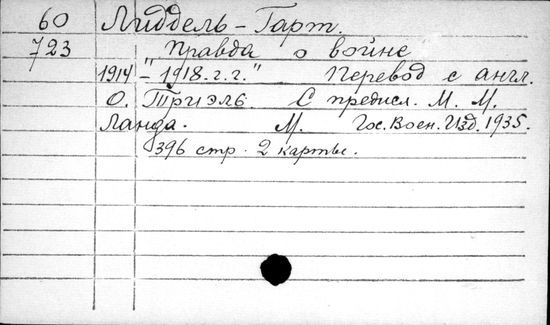 60 Лиддель-Гарт.
723 "Правда о войне
1914-1918.г.г." Перевод с англ.
О. Триэль. С предисл. М. М.
Ланда. М. Гос. Воен. Изд. 1935.
396 стр. 2 карты.